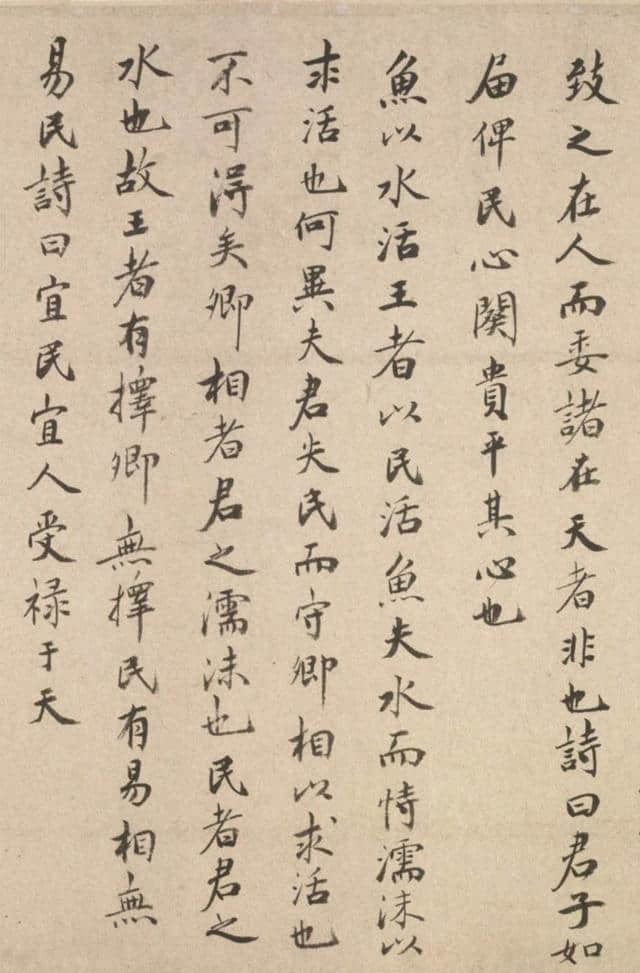 致之在人而委諸在天者非也詩曰君子如
届俾民心闋貴平其心也
魚以水活王者以民活魚失水而恃濡沫以
求活也何異夫君失民而守卿相以求活也
不可得矣卿相者君之濡沫也民者君之
水也故王者有擇卿無擇民有易相無
易民詩曰宜民宜人受禄于天